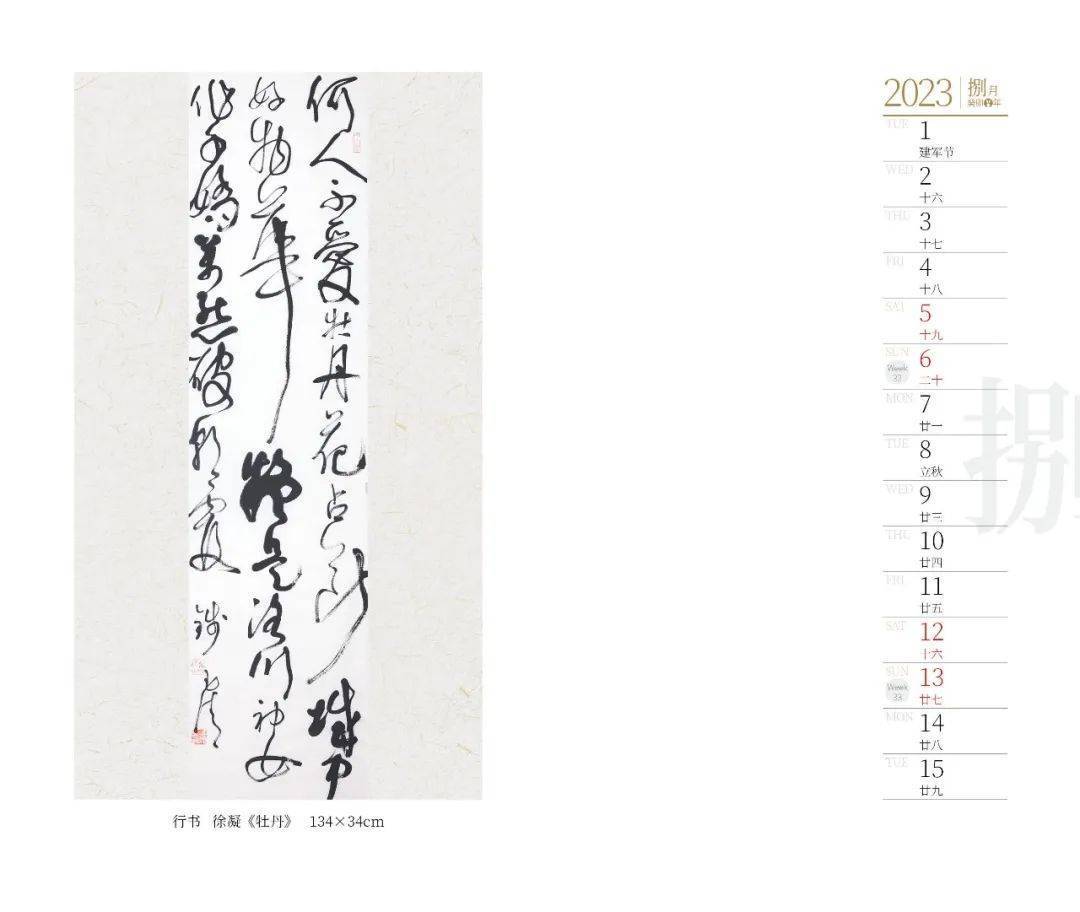 何人不愛牡丹花占斷城中
好物華疑是洛川神女
作千嬌萬態破朝霞
行书 徐凝《牡丹》 134×34cm
2023 捌月
癸卯年
TUE 1
建军节
WED 2
十六
THU 3
十七
FRI 4
十八
SAT 5
十九
SUN 6
Week 二十
MON 7
廿一
TUE 8
立秋
WED 9
廿三
THU 10
廿四
FRI 11
廿五
SAT 12
十六
SUN 13
Week 33 廿七
MON 14
廿八
TUE 15
廿九
捌